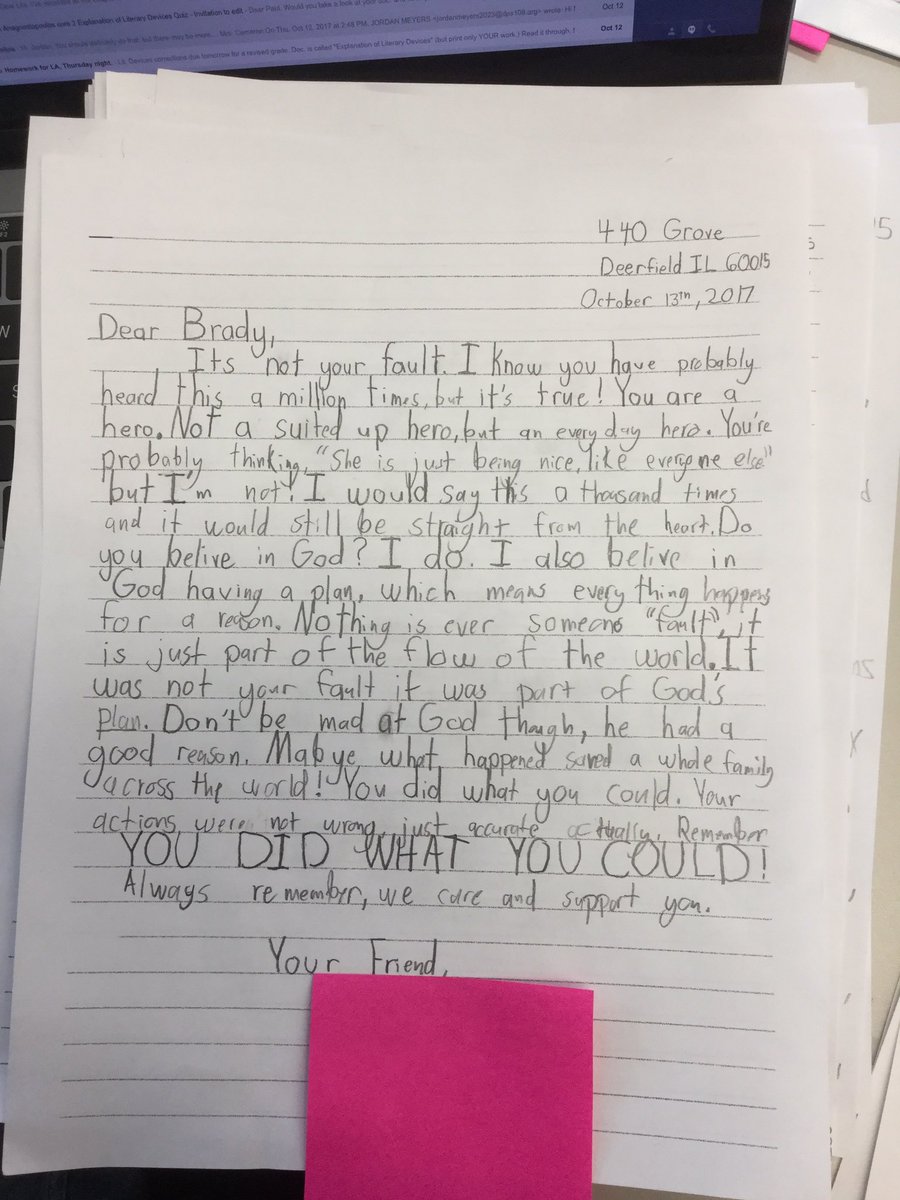 2 Explanation of Literary Devices Quiz - Invitation to edit - Dear Paid, Would you take a look at Oct 12
Mrs. Cameron On Thu, Oct 12, 2017 at 2:48 PM, JORDAN MEYERS wrote: Hi ! Oct 12
Homework for LA, Thursday night. - Lit. Devices corrections due tomorrow for a revised grade. Doc. is called "Explanation of Literary Devices" (but print only YOUR work.) Read it through.
440 Grove
Deerfield IL 60015
October 13th, 2017
Dear Brady,
Its not your fault. I know you have probably
heard this a million times, but it's true! You are a
hero. Not a suited up hero, but an every day hero. You're
probably thinking, "She is just being nice, like everyone else"
but I'm not! I would say this a thousand times
and it would still be straight from the heart. Do
you belive in God? I do. I also belive in
God having a plan, which means every thing happens
for a reason. Nothing is ever someone "fault", it
is just part of the flow of the world. It
was not your fault it was part of God's
plan. Don't be mad at God though, he had a
good reason. Mabye what happened saved a whole family
across the world! You did what you could. Your
actions were not wrong, just accurate actually. Remember
YOU DID WHAT YOU COULD!
Always remember, we care and support you.
Your Friend,